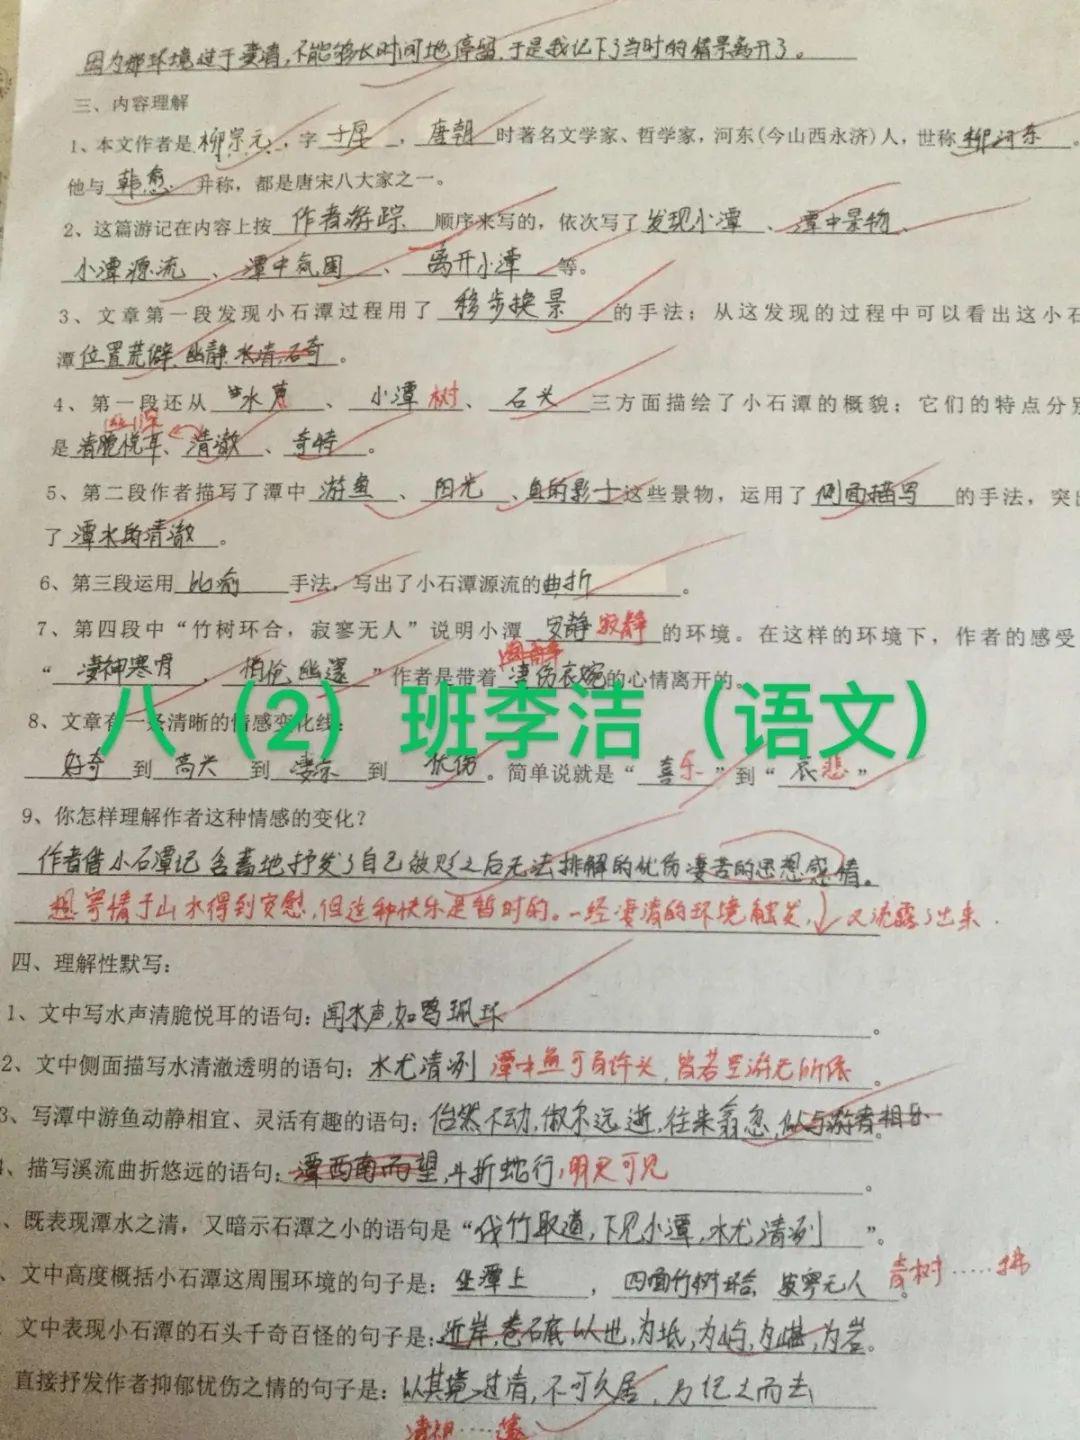 因为那环境过于凄清,不能够长时间地停留,于是我记下了当时的情景离开了。
三、内容理解
1、本文作者是柳宗元,字子厚,唐朝时著名文学家、哲学家,河东(今山西永济)人,世称柳河东。
他与韩愈并称,都是唐宋八大家之一。
2、这篇游记在内容上按作者游踪顺序来写的,依次写了发现小潭、潭中景物、
小潭源流、潭中氛围、离开小潭等。
3、文章第一段发现小石潭过程用了移步换景的手法;从这发现的过程中可以看出这小石
潭位置荒僻、幽静水清,石奇。
4、第一段还从水、小潭树、石头三方面描绘了小石潭的概貌;它们的特点分别
是清脆悦耳、清澈、奇特。
5、第二段作者描写了潭中游鱼、阳光、鱼的影士这些景物,运用了侧面描写的手法,突出
了潭水的清澈。
6、第三段运用比喻手法,写出了小石潭源流的曲折。
7、第四段中“竹树环合,寂寥无人”说明小潭安静寂静的环境。在这样的环境下,作者的感受
“凄神寒骨,悄怆幽邃”作者是带着凄伤哀婉的心情离开的。
八(2)班李洁(语文)
8、文章有一条清晰的情感变化线:
好奇到高兴到凄凉到忧伤。简单说就是“喜乐”到“哀悲”
9、你怎样理解作者这种情感的变化?
作者借小石潭记含蓄地抒发了自己被贬之后无法排解的忧伤凄苦的思想感情。
想寄情于山水得到安慰,但这种快乐是暂时的。一经凄清的环境触发,又流露了出来.
四、理解性默写:
1、文中写水声清脆悦耳的语句:闻水声,如鸣珮环。
2、文中侧面描写水清澈透明的语句:水尤清冽 潭中鱼可百许头,皆若空游无所依。
3、写潭中游鱼动静相宜、灵活有趣的语句:佁然不动,俶尔远逝,往来翕忽,似与游者相乐。
、描写溪流曲折悠远的语句:潭西南而望,斗折蛇行,明灭可见。
、既表现潭水之清,又暗示石潭之小的语句是“伐竹取道,下见小潭,水尤清冽”。
、文中高度概括小石潭这周围环境的句子是:坐潭上,四面竹树环合,寂寥无人。青树……拂
文中表现小石潭的石头千奇百怪的句子是:近岸,卷石底以出,为坻,为屿,为嵁,为岩。
直接抒发作者抑郁忧伤之情的句子是:以其境过清,不可久居,乃记之而去
凄神……邃